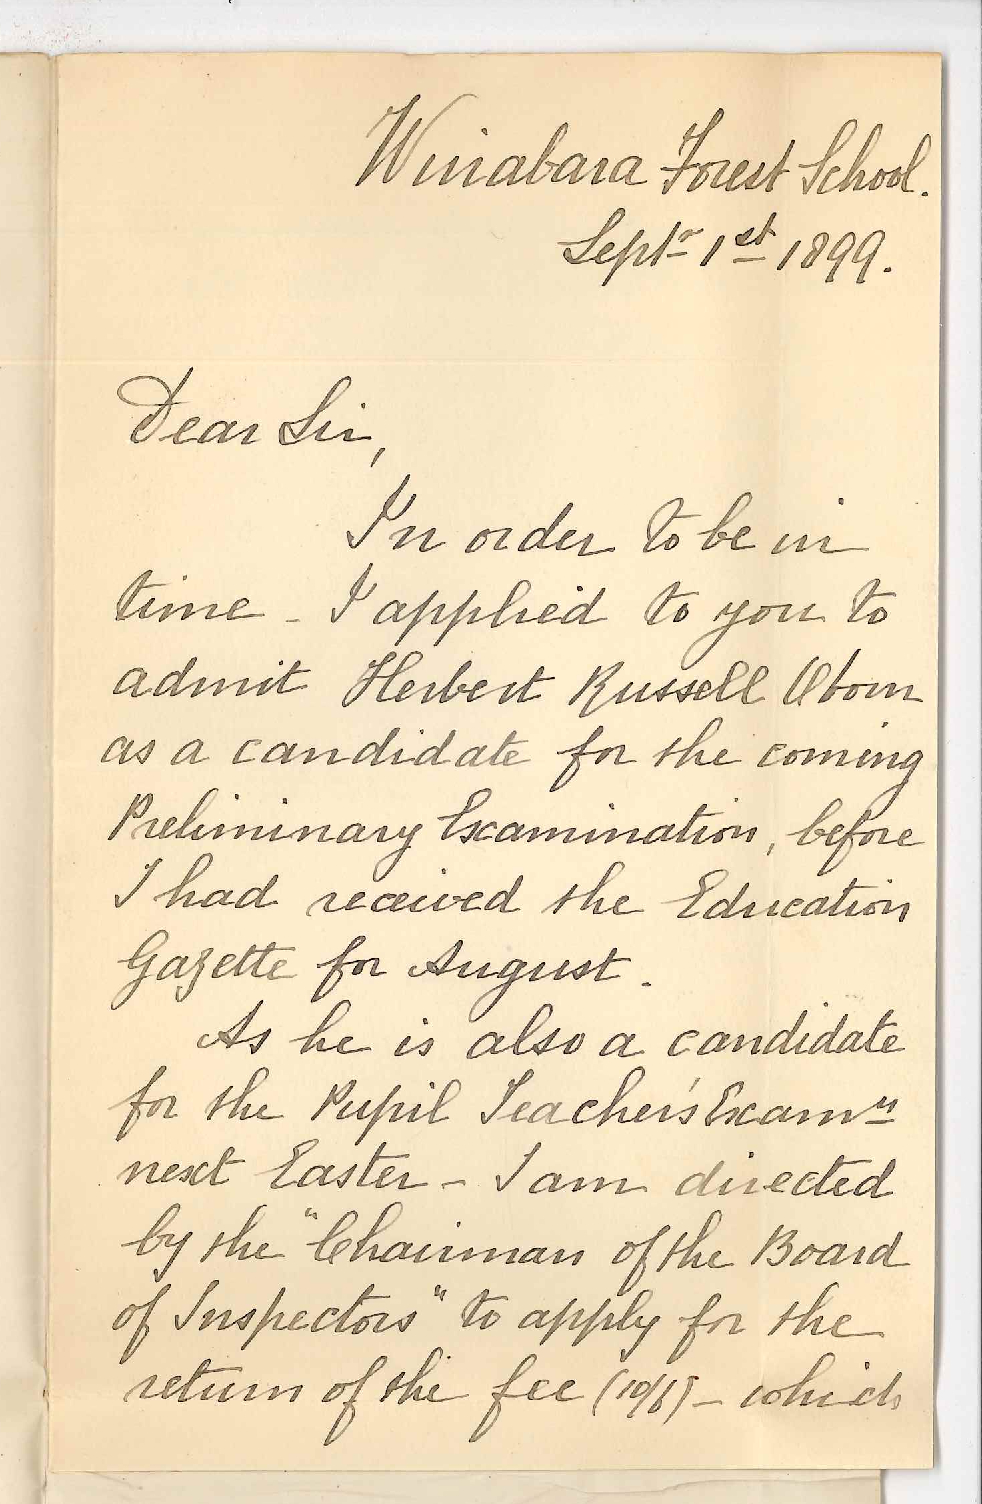 Wirrabara Forest School.
Septr 1st 1899.
Dear Sir,
In order to be in
time - I applied to you to
admit Herbert Russell Otom
as a candidate for the coming
Preliminary Examination, before
I had received the Education
Gazette for August.
As he is also a candidate
for the Pupil Teacher's Examn
next Easter - I am directed
by the "Chairman of the Board
of Inspectors" to apply for the
return of the fee (10/6) - which